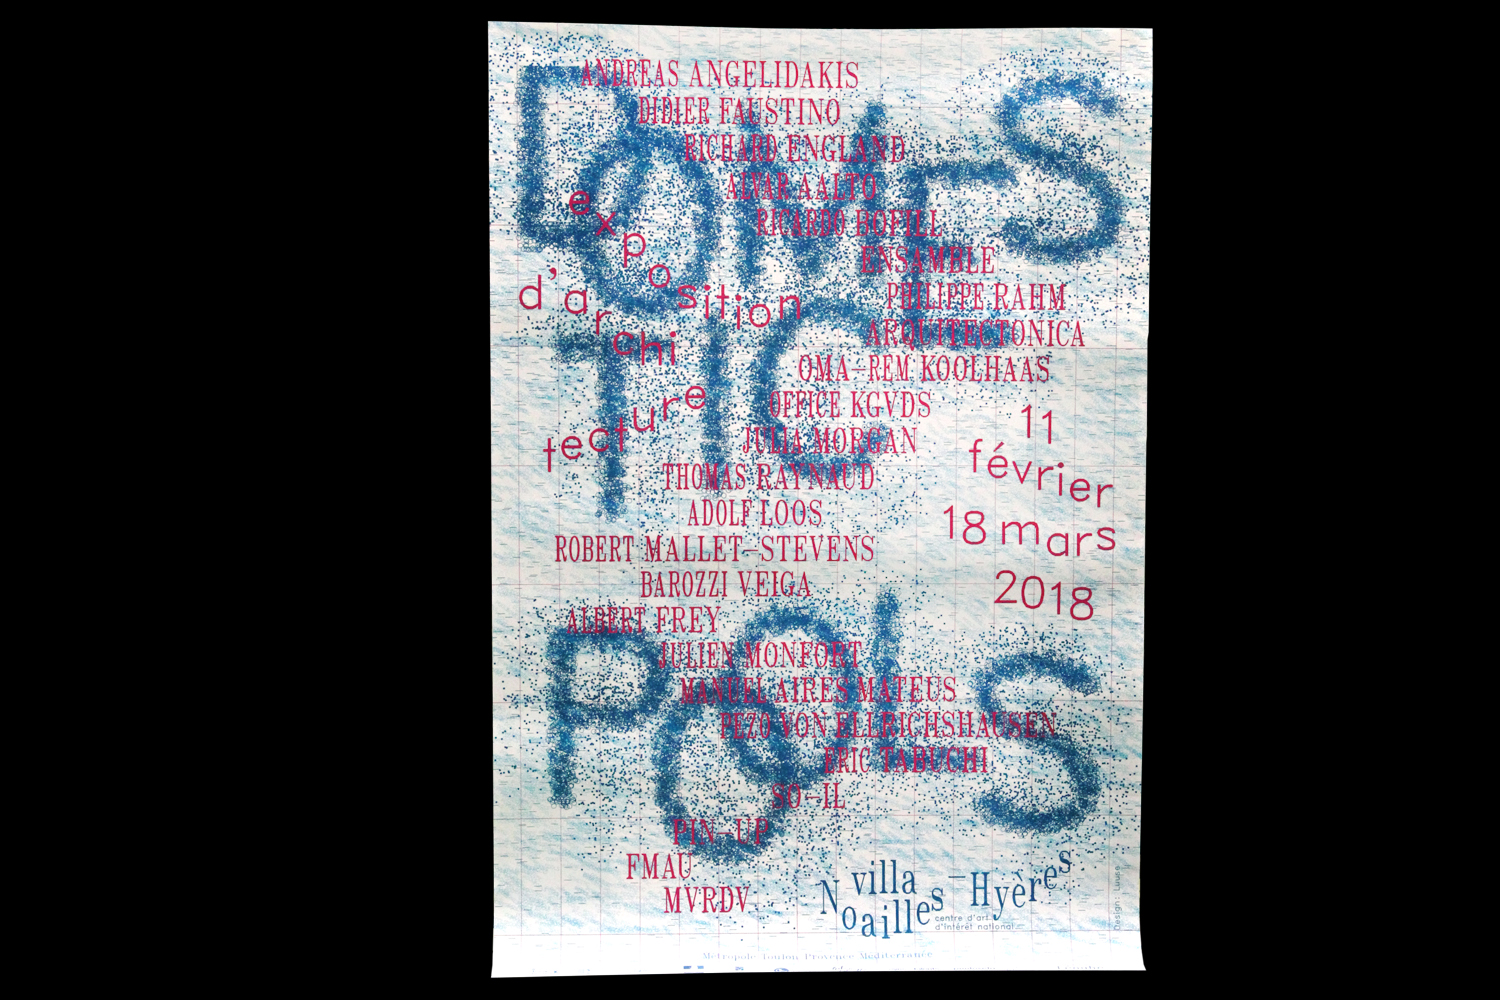 DOMES
TIC
POOLS
exposition
d'archi
tecture
ANDREAS ANGELIDAKIS
DIDIER FAUSTINO
RICHARD ENGLAND
ALVAR AALTO
RICARDO BOFILL
ENSAMBLE
PHILIPPE RAHM
ARQUITECTONICA
OMA-REM KOOLHAAS
OFFICE KGVDS
JULIA MORGAN
THOMAS RAYNAUD
ADOLF LOOS
ROBERT MALLET-STEVENS
BAROZZI VEIGA
ALBERT FREY
JULIEN MONFORT
MANUEL AIRES MATEUS
PEZO VON ELLRICHSHAUSEN
ERIC TABUCHI
SO-IL
PIN-UP
FMAU
MVRDV
11
février
18 mars
2018
villa
Noailles - Hyères
centre d'art
d'intérêt national
Design: Luuse
Métropole Toulon Provence Méditerranée